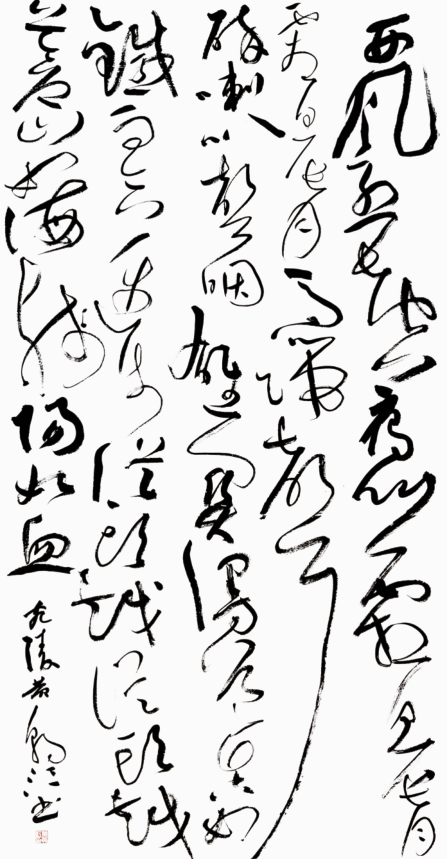 西风烈长空雁叫霜晨月
霜晨月马蹄声
碎喇叭声咽雄关漫道真如
铁而今迈步从头越从头越
苍山如海残阳如血
书